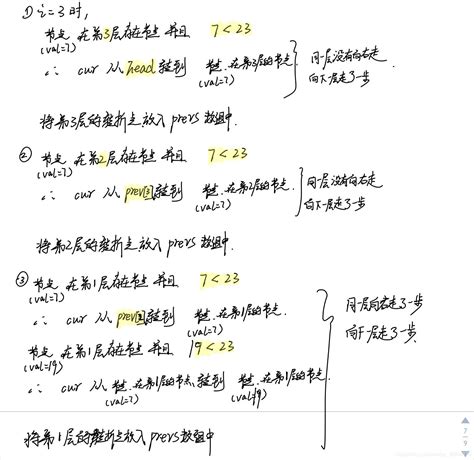 ① i=3 时,
节点 在第3层存在节点 并且 7<23
(val=7)
∴ cur 从 head 转到 节点 在第3层的节点
(val=7)
同一层没有向右走
向下一层走了一步
将第3层的转折点放入 prevs 数组中.
② 节点 在第2层存在节点 并且 7<23
(val=7)
∴ cur 从 prev 转到 节点 在第2层的节点.
(val=7)
同一层没有向右走
向下一层走了一步
将第2层的转折点放入 prevs 数组中.
③ 节点 在第1层存在节点 并且 7<23
(val=7)
∴ cur 从 prev 转到 节点 在第1层的节点.
(val=7)
节点 在第1层存在节点 并且 19<23
(val=19)
∴ cur 从 节点 在第1层的节点 转到 节点 在第1层的节点.
(val=7) (val=19)
同一层向右走了一步
向下一层走了一步.
将第1层的转折点放入 prevs 数组中
7
9